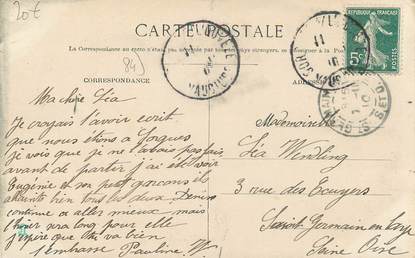 20€
CARTE POSTALE
La Correspondance au recto n'est pas acceptée par tous
(84)
CORRESPONDANCE
VAUCLUSE
5c
Ma chère Léa
Je croyais t'avoir écrit
que nous étions a Sorgues
je vois que je ne l'avais pas fait
avant de partir j'ai été voir
Eugénie et son petit garçon ils
allaient bien tous les deux Denise
continue a aller mieux mais
l'hiver sera long pour elle
j'espère que tu va bien
t'embrasse Pauline W.
Mademoiselle
Léa Wendling
3 rue des Ecuyers
Saint Germain en Laye
Seine Oise